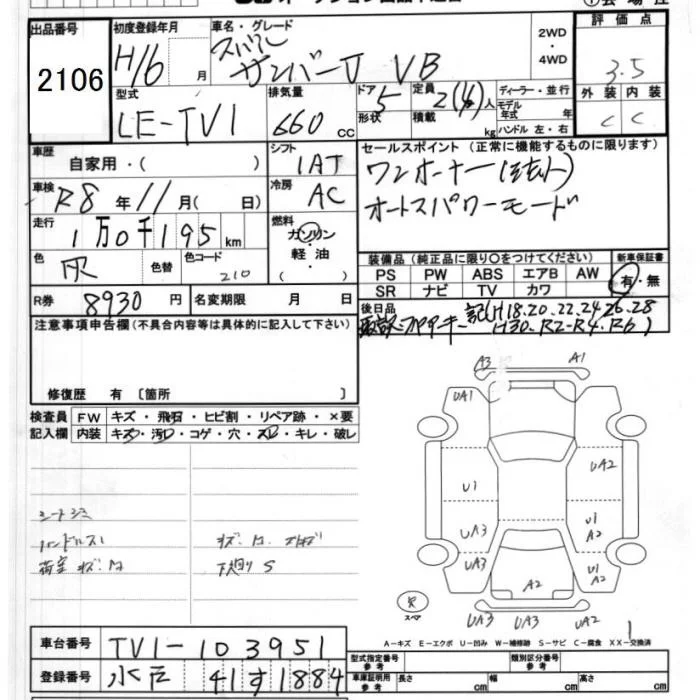 出品番号
2106
初度登録年月
H16 月
車名・グレード
スバル
サンバーV VB
2WD
・
4WD
評価点
3.5
外装 内装
C C
型式
LE-TV1
排気量
660 cc
ドア 5
形状
定員 2(4)人
積載 kg
ディーラー・並行
モデル年式 年
ハンドル 左・右
車歴
自家用・( )
シフト
IAT
セールスポイント (正常に機能するものに限ります)
ワンオーナー
オートスパワーモード
車検
R8年11月( 日)
冷房
AC
走行
1万0千195km
燃料
ガソリン
・
軽油
・
( )
色
灰
色替
色コード
210
装備品 (純正品に限り○をつけてください)
PS PW ABS エアB AW
SR ナビ TV カワ
新車保証書
有・無
R券 8930円
名変期限 月 日
後日品
取説 記(H18.20.22.24.26.28
H30.R2-R4.R6)
注意事項申告欄(不具合内容等は具体的に記入して下さい)
修復歴 有 〔箇所 〕
検査員記入欄
FW キズ・飛石・ヒビ割・リペア跡・×要
内装 キズ・汚レ・コゲ・穴・スレ・キレ・破レ
シートシミ
ハンドルスレ
荷室キズ
下回りS
A3 A1
UA1
UA2
U1
UA3
U1
A2
UA3
U1
A2
A2
スペア
UA3 UA3 UA2
A-キズ E-エクボ U-凹み W-補修跡 S-サビ C-腐食 XX-交換済
車台番号 TV1-103951
登録番号 水戸 41す1884
型式指定番号
参考
類別区分番号
参考
車庫証明用
参考
長さ cm
幅 cm
高さ cm